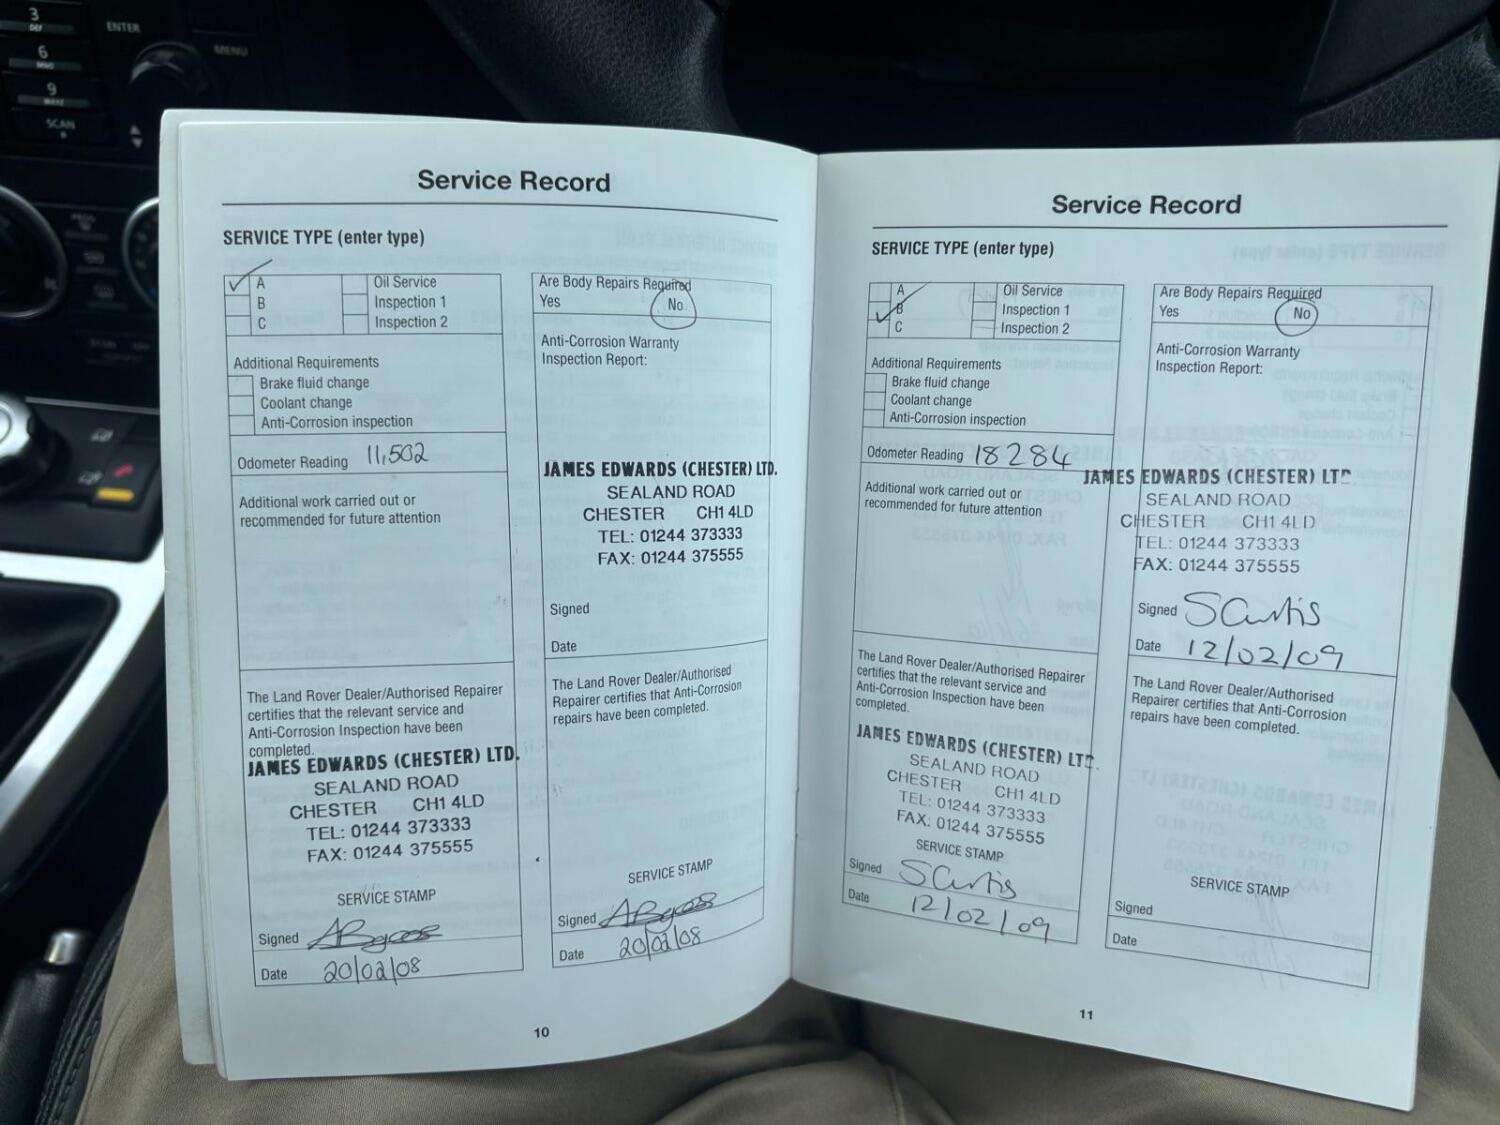 3
DEF
ENTER
MENU
6
MNO
9
WXYZ
SCAN
Service Record
SERVICE TYPE (enter type)
A
Oil Service
B
Inspection 1
C
Inspection 2
Additional Requirements
Brake fluid change
Coolant change
Anti-Corrosion inspection
Odometer Reading 11,502
Additional work carried out or
recommended for future attention
The Land Rover Dealer/Authorised Repairer
certifies that the relevant service and
Anti-Corrosion Inspection have been
completed.
JAMES EDWARDS (CHESTER) LTD.
SEALAND ROAD
CHESTER CH1 4LD
TEL: 01244 373333
FAX: 01244 375555
SERVICE STAMP
Signed
Date 20/02/08
Are Body Repairs Required
Yes No
Anti-Corrosion Warranty
Inspection Report:
JAMES EDWARDS (CHESTER) LTD.
SEALAND ROAD
CHESTER CH1 4LD
TEL: 01244 373333
FAX: 01244 375555
Signed
Date
The Land Rover Dealer/Authorised
Repairer certifies that Anti-Corrosion
repairs have been completed.
SERVICE STAMP
Signed
Date 20/02/08
10
Service Record
SERVICE TYPE (enter type)
A
Oil Service
B
Inspection 1
C
Inspection 2
Additional Requirements
Brake fluid change
Coolant change
Anti-Corrosion inspection
Odometer Reading 18284
Additional work carried out or
recommended for future attention
The Land Rover Dealer/Authorised Repairer
certifies that the relevant service and
Anti-Corrosion Inspection have been
completed.
JAMES EDWARDS (CHESTER) LTD.
SEALAND ROAD
CHESTER CH1 4LD
TEL: 01244 373333
FAX: 01244 375555
SERVICE STAMP
Signed SCurtis
Date 12/02/09
Are Body Repairs Required
Yes No
Anti-Corrosion Warranty
Inspection Report:
JAMES EDWARDS (CHESTER) LTD
SEALAND ROAD
CHESTER CH1 4LD
TEL: 01244 373333
FAX: 01244 375555
Signed SCurtis
Date 12/02/09
The Land Rover Dealer/Authorised
Repairer certifies that Anti-Corrosion
repairs have been completed.
SERVICE STAMP
Signed
Date
11